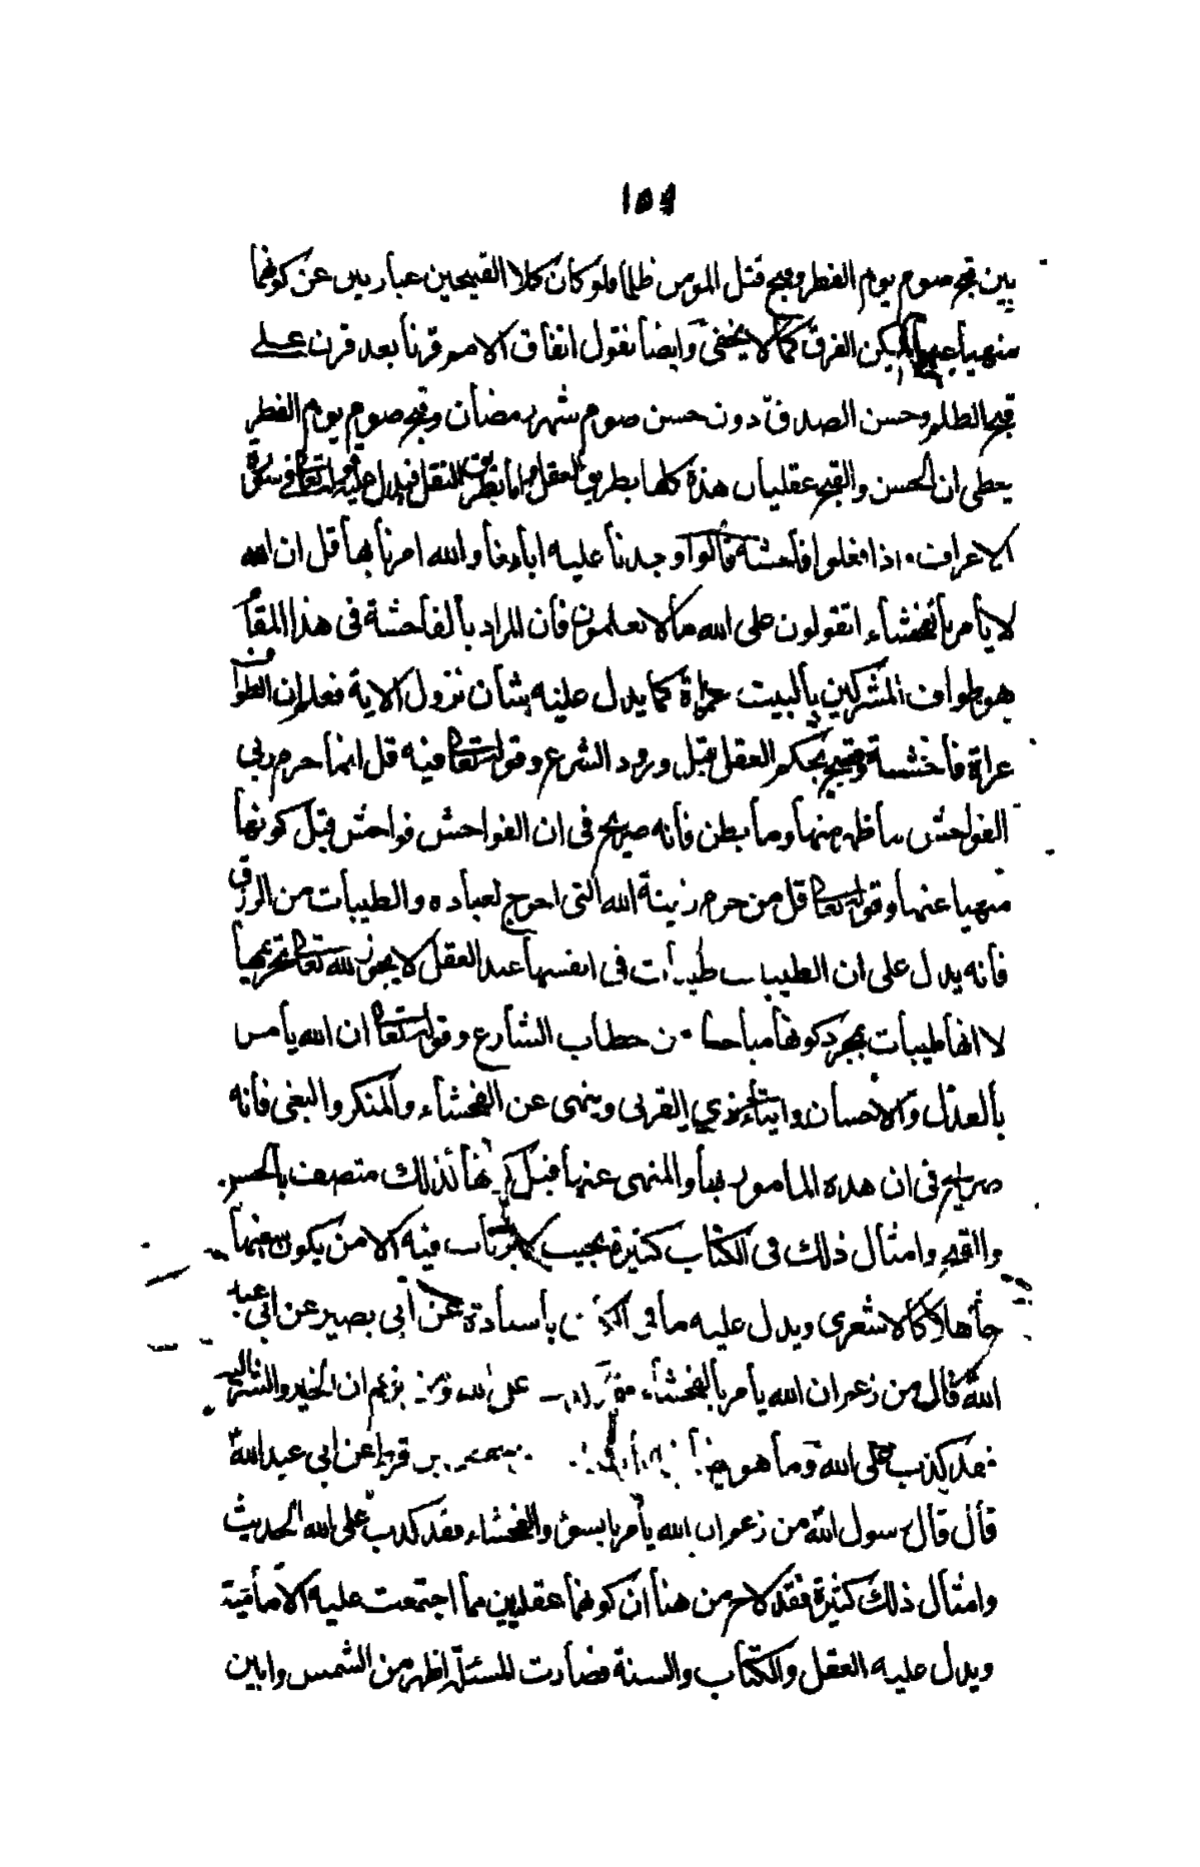 بين قبح صوم يوم الفطر وقبح قتل المومن ظلما ولو كان كلا القبيحين عبارتين عن كونهما
منهيا عنهما لم يكن الفرق كما لا يخفى وايضا نقول اتفاق الامم قرنا بعد قرن على
قبح الظلم وحسن الصدق دون حسن صوم شهر رمضان وقبح صوم يوم الفطر
يعطى ان الحسن والقبح عقليان هذه كلها بطريق العقل واما بطريق النقل فيدل عليه قوله تعالى في سورة
الاعراف اذا فعلوا فاحشة قالوا وجدنا عليه اباءنا والله امرنا بها قل ان الله
لا يأمر بالفحشاء اتقولون على الله ما لا تعلمون فان المراد بالفاحشة فى هذا المقام
هو طواف المشركين بالبيت عراة كما يدل عليه شان نزول الاية فعلم ان الطواف
عراة فاحشة وقبيح بحكم العقل قبل ورود الشرع وقوله تعالى فيه قل انما حرم ربي
الفواحش ما ظهر منها وما بطن فانه صريح فى ان الفواحش فواحش قبل كونها
منهيا عنها وقوله تعالى قل من حرم زينة الله التى اخرج لعباده والطيبات من الرزق
فانه يدل على ان الطيبات طيبات فى انفسها عند العقل لا يجوز لله تعالى تحريمها
لا انها طيبات بمجرد كونها مباحا من خطاب الشارع وقوله تعالى ان الله يأمر
بالعدل والاحسان وايتاء ذي القربى وينهى عن الفحشاء والمنكر والبغى فانه
صريح فى ان هذه المامور بها والمنهى عنها قبل كونها كذلك متصف بالحسن
والقبح وامثال ذلك فى الكتاب كثيرة بحيث لا يرتاب فيه الا من يكون سفيها
جاهلا كالاشعرى ويدل عليه ما فى باسناده عن ابى بصير عن ابى عبد
الله قال من زعم ان الله يأمر بالفحشاء فقد كذب على الله ومن زعم ان الخير والشر اليه
فقد كذب على الله وما هو بن قرط عن ابى عبد الله
قال قال رسول الله من زعم ان الله يأمر بالسوء والفحشاء فقد كذب على الله الحديث
وامثال ذلك كثيرة فقد لاح من هنا ان كونهما عقليين مما اجتمعت عليه الامامية
ويدل عليه العقل والكتاب والسنة فصارت المسئلة اظهر من الشمس وابين